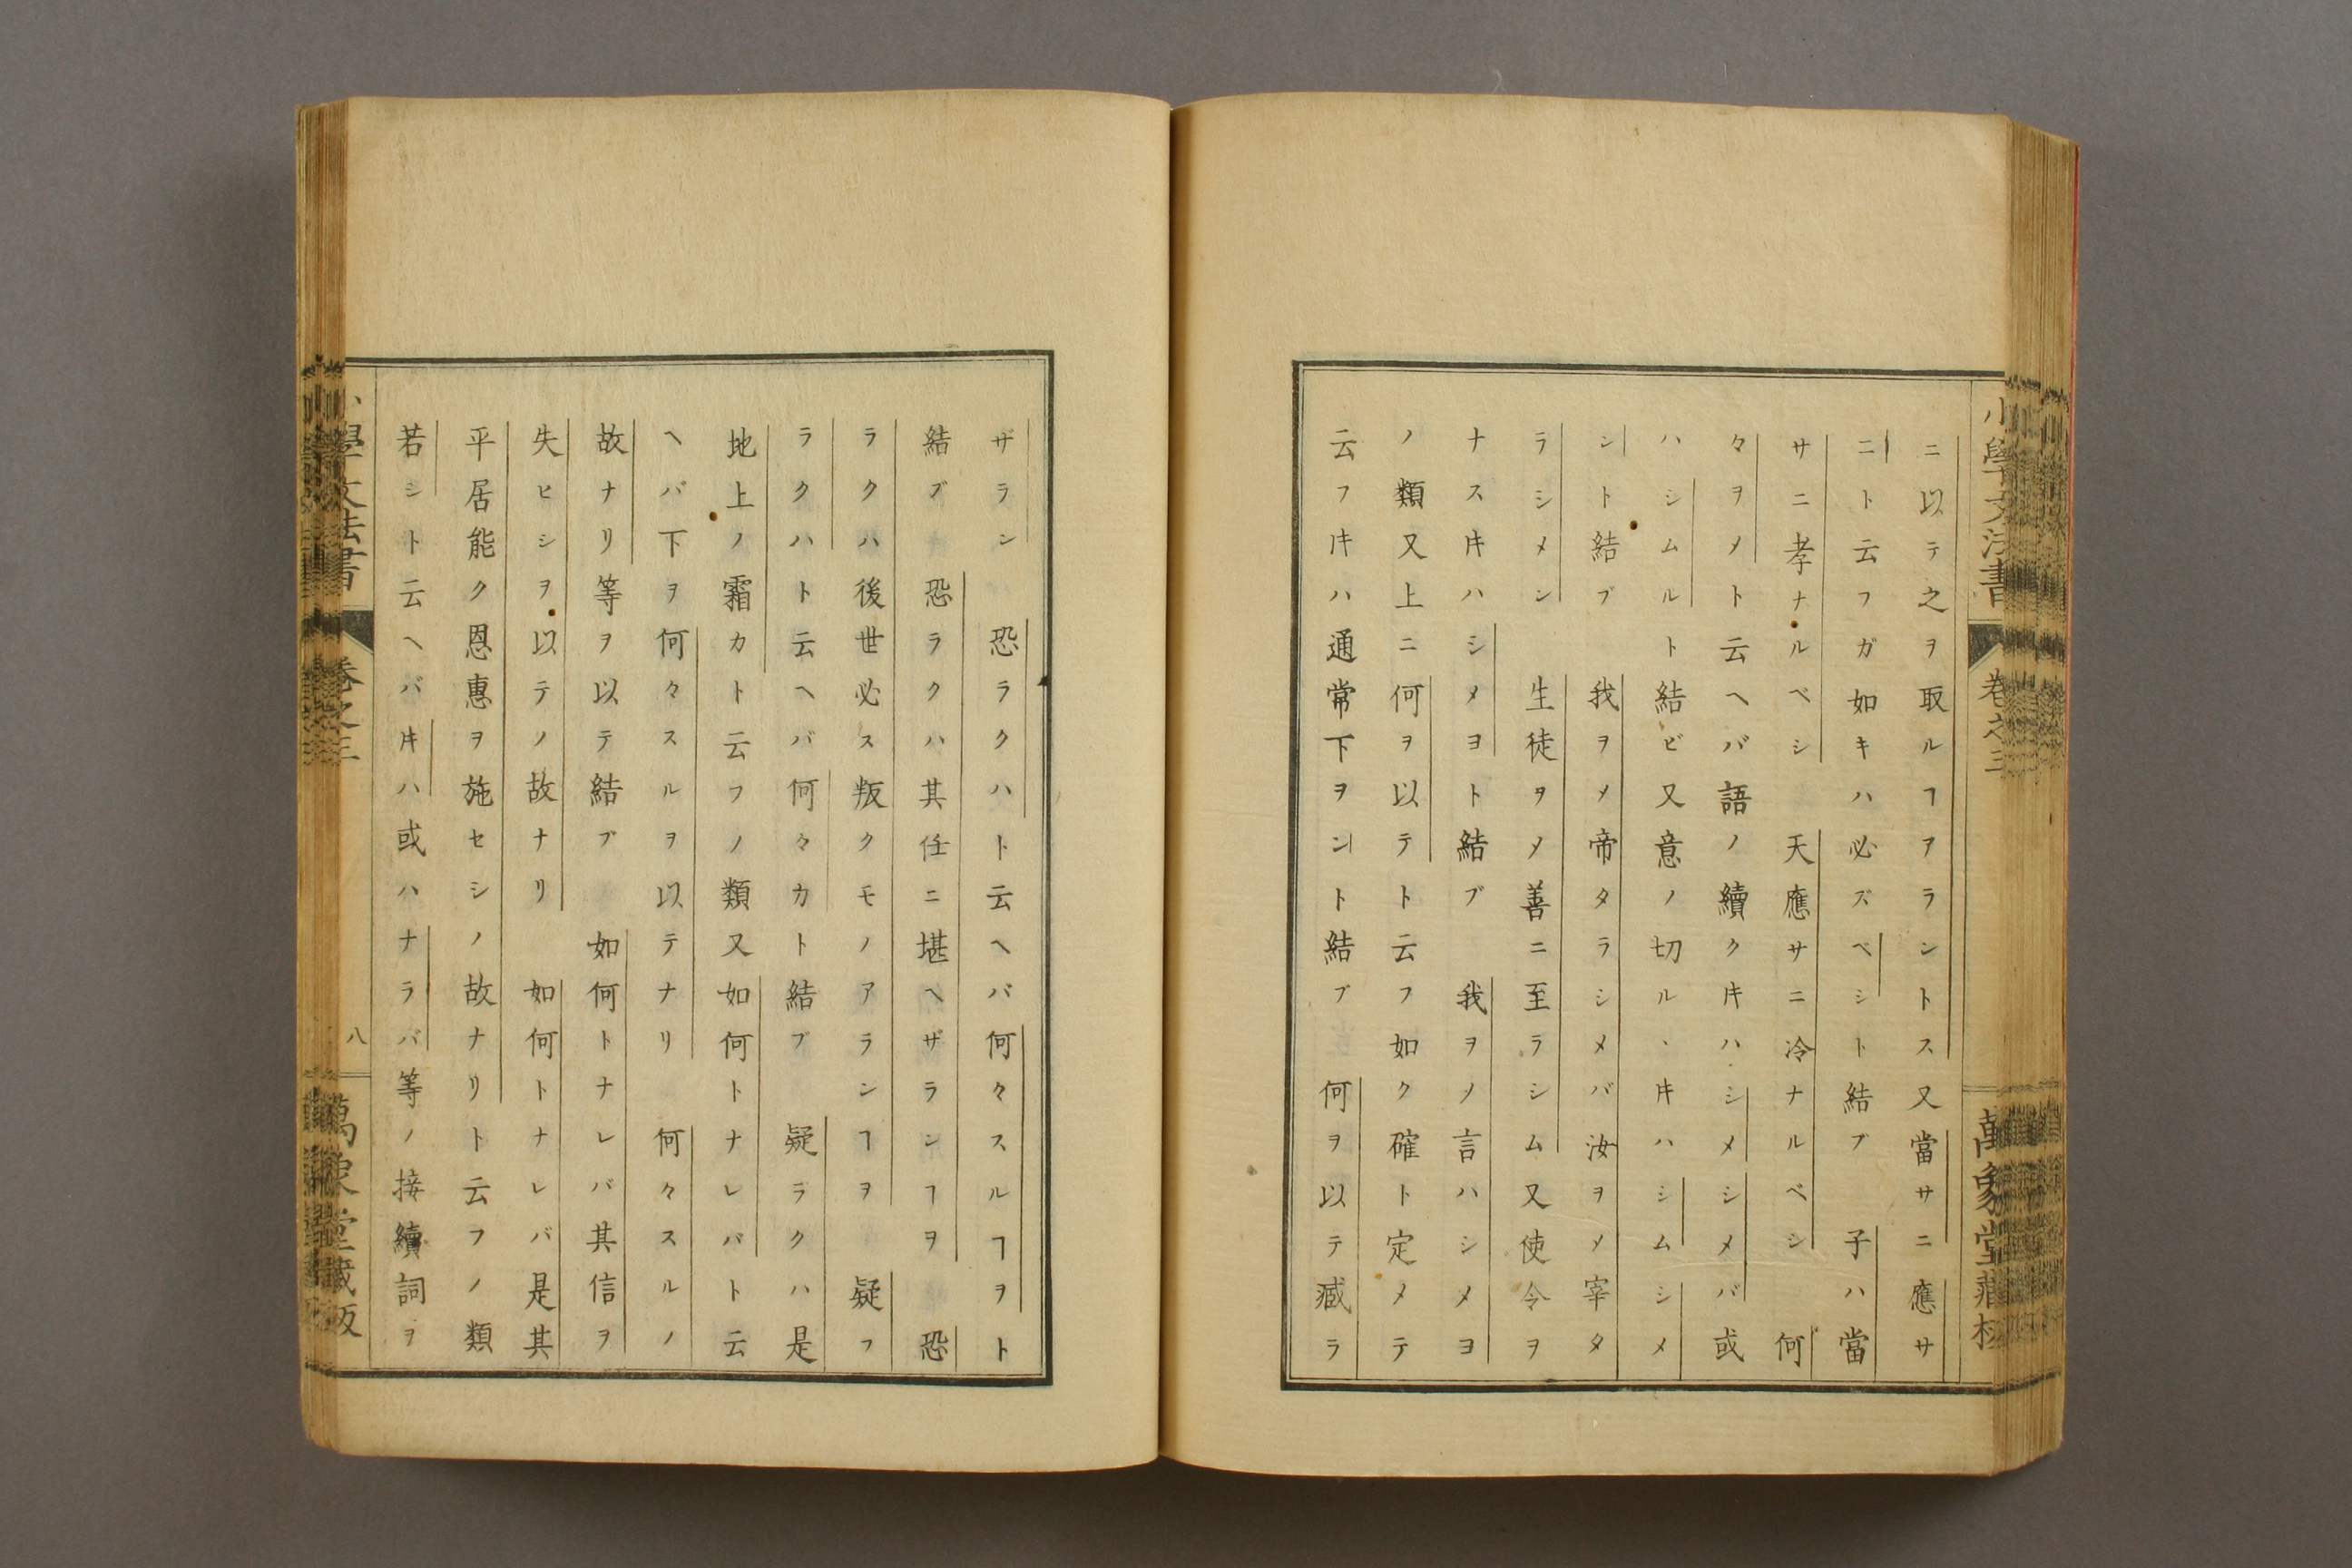 小學文法書 卷之三 萬象堂藏板
ニ以テ之ヲ取ルヿアラントス又當サニ應サ
ニト云フガ如キハ必ズベシト結ブ 子ハ當
サニ孝ナルベシ 天應サニ冷ナルベシ 何
々ヲメト云ヘバ語ノ續クキハシメシメバ或
ハシムルト結ビ又意ノ切ルヽキハシムシメ
シト結ブ 我ヲメ帝タラシメバ汝ヲメ宰タ
ラシメン 生徒ヲメ善ニ至ラシム又使令ヲ
ナスキハシメヨト結ブ 我ヲメ言ハシメヨ
ノ類又上ニ何ヲ以テト云フ如ク確ト定メテ
云フキハ通常下ヲント結ブ 何ヲ以テ臧ラ
ザラン 恐ラクハト云ヘバ何々スルヿヲト
結ブ 恐ラクハ其任ニ堪ヘザランヿヲ 恐
ラクハ後世必ス叛クモノアランヿヲ 疑フ
ラクハト云ヘバ何々カト結ブ 疑ラクハ是
地上ノ霜カト云フノ類又如何トナレバト云
ヘバ下ヲ何々スルヲ以テナリ 何々スルノ
故ナリ等ヲ以テ結ブ 如何トナレバ其信ヲ
失ヒシヲ以テノ故ナリ 如何トナレバ是其
平居能ク恩惠ヲ施セシノ故ナリト云フノ類
若シト云ヘバキハ或ハナラバ等ノ接續詞ヲ
小學文法書 卷之三 八 萬象堂藏版